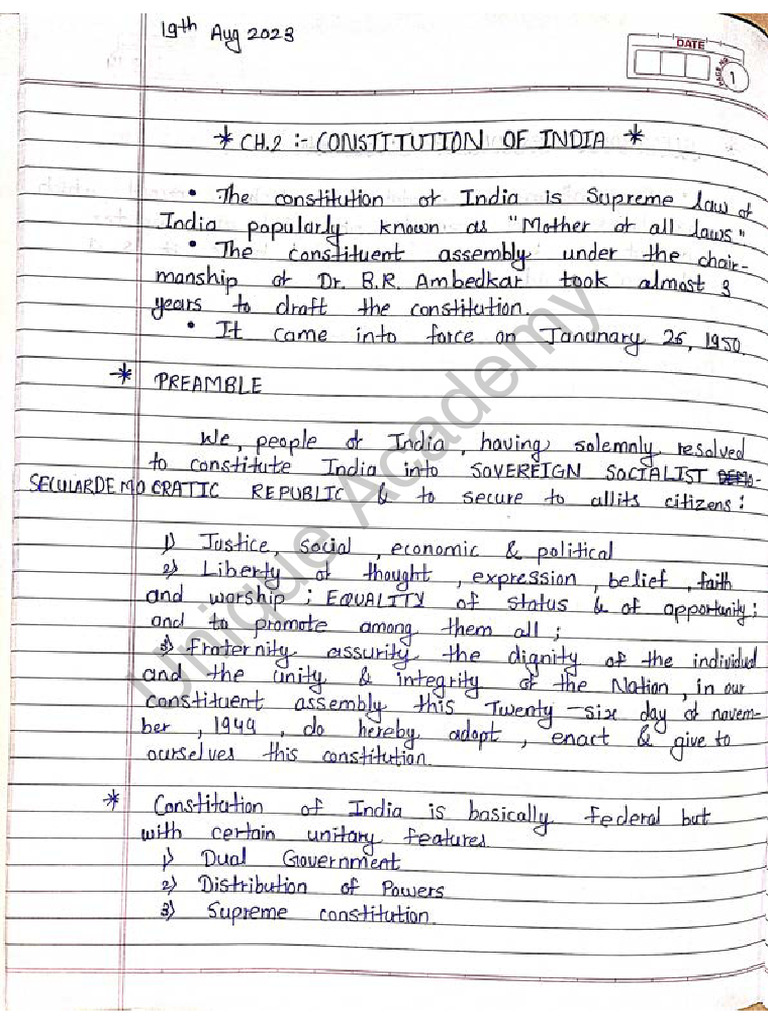 19th Aug 2023
DATE
PAGE NO. 1
* CH.2 :- CONSTITUTION OF INDIA *
• The constitution of India is Supreme law of
India popularly known as "Mother of all laws"
• The constituent assembly under the chair-
manship of Dr. B.R. Ambedkar took almost 3
years to draft the constitution.
• It came into force on Janunary 26, 1950.
* PREAMBLE
We, people of India, having solemnly resolved
to constitute India into SOVEREIGN SOCIALIST
SECULARDEMOCRATIC REPUBLIC & to secure to allits citizens:
1) Justice, social, economic & political
2) Liberty of thought, expression, belief, faith
and worship; EQUALITY of status & of opportunity;
and to promote among them all;
3) fraternity assurity the dignity of the individual
and the unity & integrity of the Nation, in our
constituent assembly this Twenty-six day of novem-
ber, 1949, do hereby adopt, enact & give to
ourselves this constitution.
* Constitution of India is basically federal but
with certain unitary features
1) Dual Government
2) Distribution of Powers
3) Supreme constitution.
Unique Academy